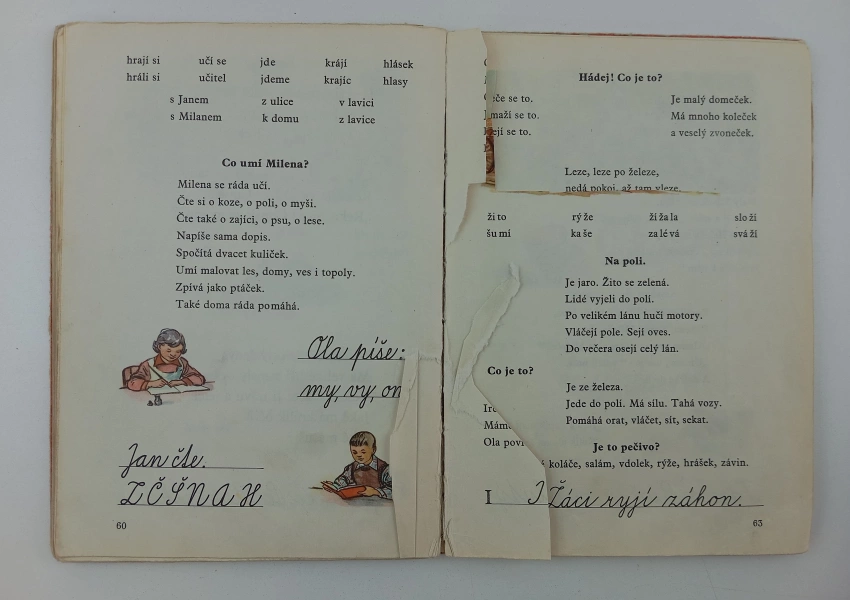 hrají si učí se jde krájí hlásek
hráli si učitel jdeme krajíc hlasy
s Janem z ulice v lavici
s Milanem k domu z lavice
Co umí Milena?
Milena se ráda učí.
Čte si o koze, o poli, o myši.
Čte také o zajíci, o psu, o lese.
Napíše sama dopis.
Spočítá dvacet kuliček.
Umí malovat les, domy, ves i topoly.
Zpívá jako ptáček.
Také doma ráda pomáhá.
Ola píše:
my, vy, on
Jan čte.
Z Č Š N A H
60
Hádej! Co je to?
se to.
se to.
se to.
Je malý domeček.
Má mnoho koleček
a veselý zvoneček.
Leze, leze po železe,
nedá pokoj, až tam vleze.
ži to rý že ži ža la slo ži
šu mí ka še za lé vá svá ží
Na poli.
Je jaro. Žito se zelená.
Lidé vyjeli do polí.
Po velikém lánu hučí motory.
Vláčejí pole. Sejí oves.
Do večera osejí celý lán.
Co je to?
Je ze železa.
Jede do polí. Má sílu. Tahá vozy.
Pomáhá orat, vláčet, sít, sekat.
Ola
Je to pečivo?
koláče, salám, vdolek, rýže, hrášek, závin.
I I Žáci ryjí záhon.
63